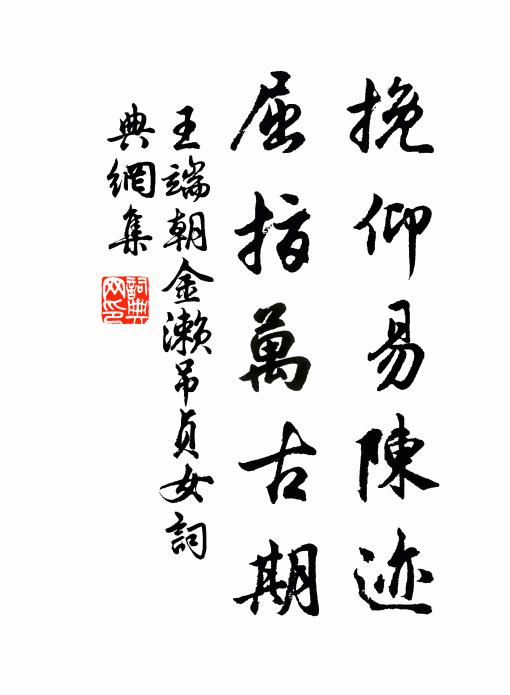 挽仰易陳迹
屈指萬古期
王端朝金瀨吊貞女詞
典網集
詞典
网印